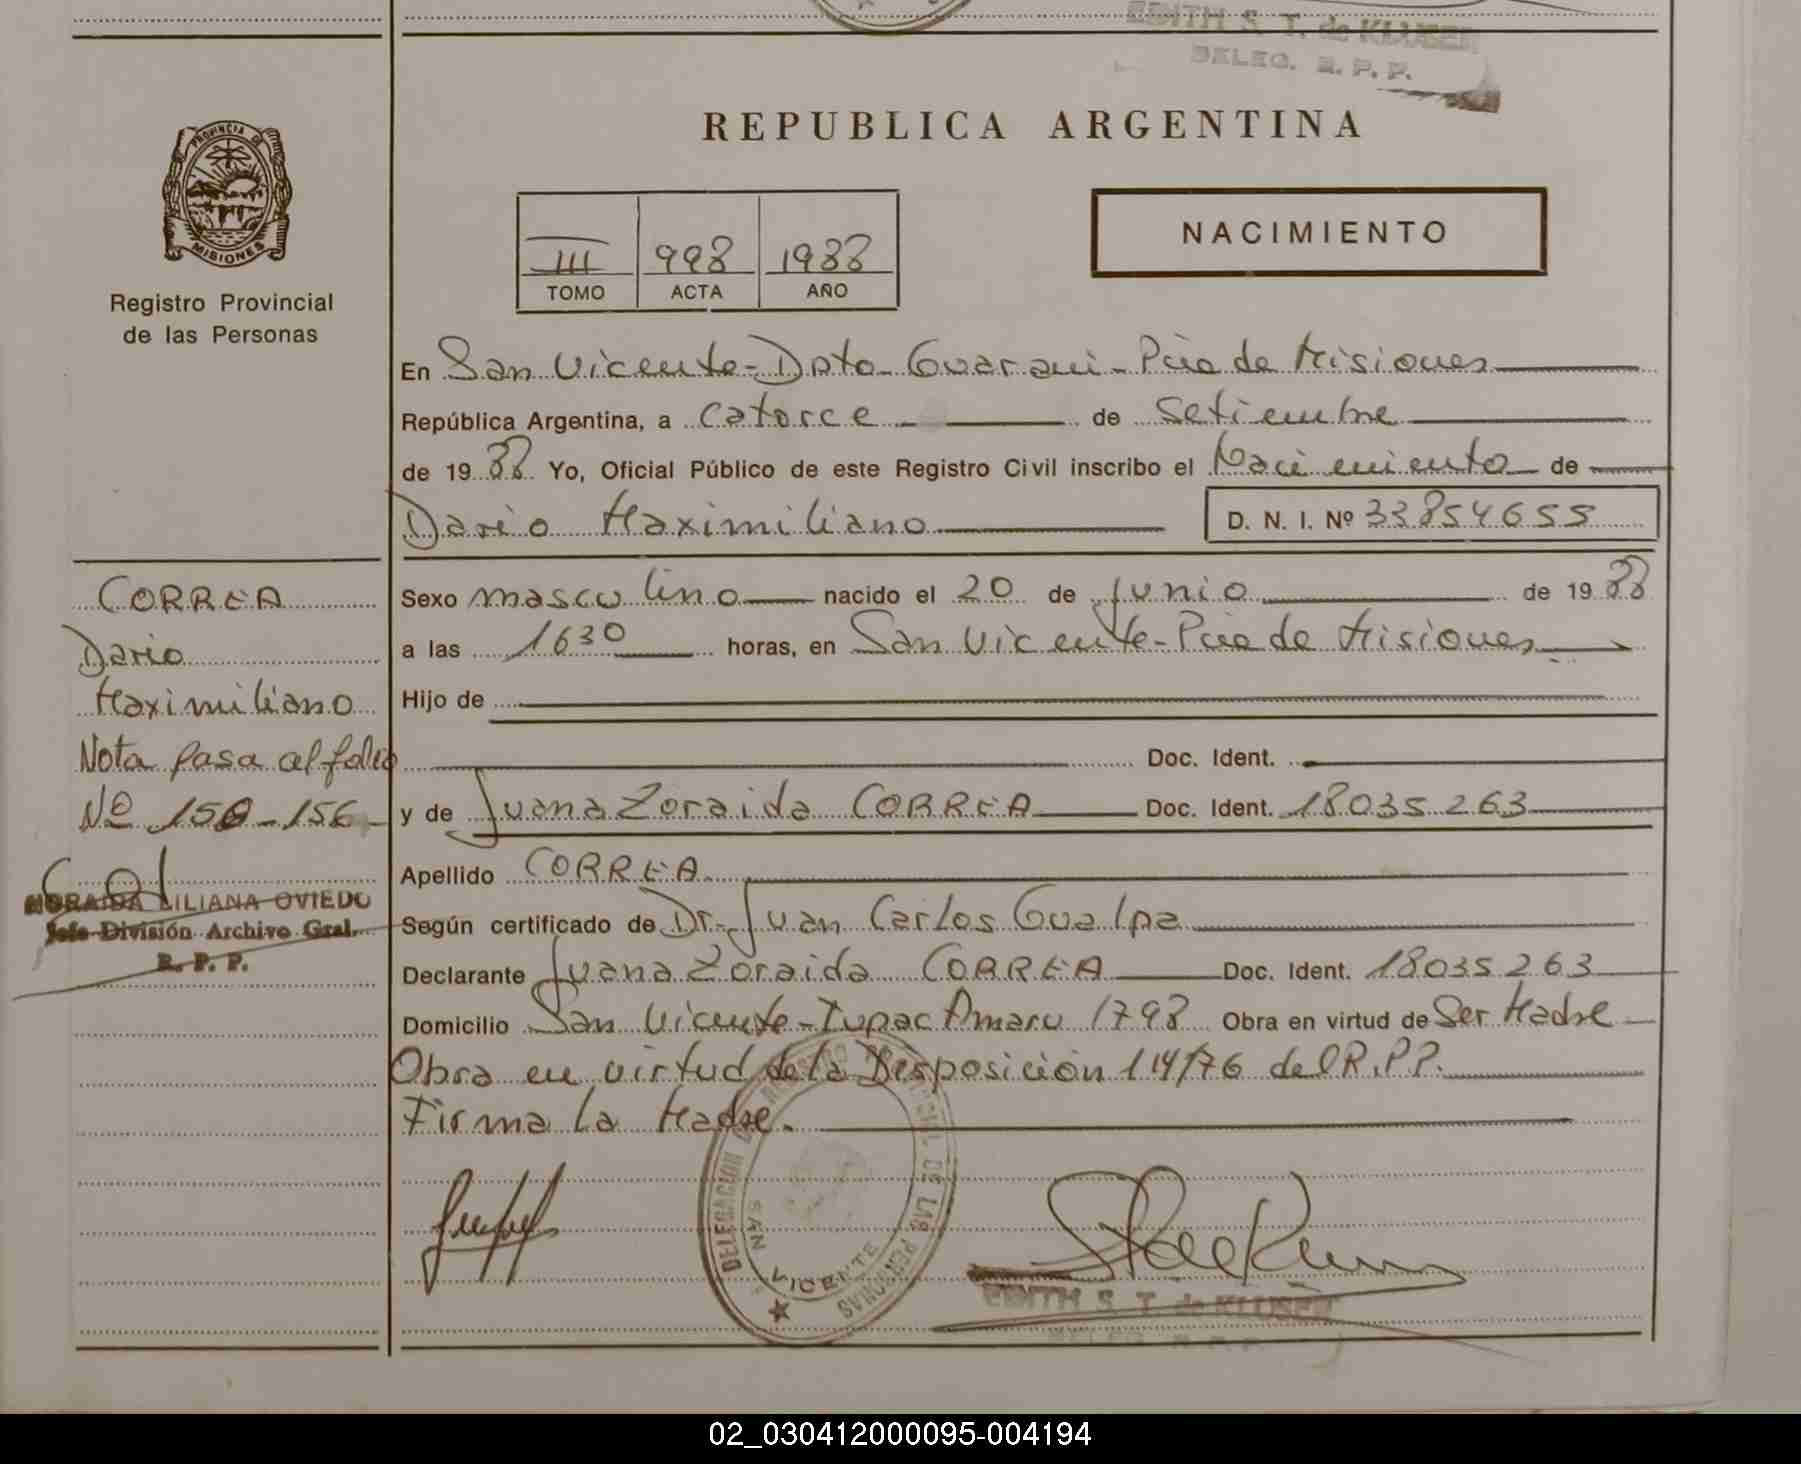 EDITH S. T. de KLUSER
DELEG. R. P. P.
REPUBLICA ARGENTINA
PROVINCIA DE
MISIONES
Registro Provincial
de las Personas
III 998 1988
TOMO ACTA AÑO
NACIMIENTO
En San Vicente-Dpto-Guarani-Pcia de Misiones
República Argentina, a catorce de Setiembre
de 1988 Yo, Oficial Público de este Registro Civil inscribo el Nacimiento de
Dario Maximiliano D. N. I. Nº 33854655
CORREA
Dario
Maximiliano
Nota pasa al folio
Nº 150-156
NORAIDA LILIANA OVIEDO
Jefe División Archivo Gral.
R. P. P.
Sexo masculino nacido el 20 de Junio de 1988
a las 1630 horas, en San Vicente-Pcia de Misiones
Hijo de
Doc. Ident.
y de Juana Zoraida CORREA Doc. Ident. 18035263
Apellido CORREA
Según certificado de Dr. Juan Carlos Gualpa
Declarante Juana Zoraida CORREA Doc. Ident. 18035263
Domicilio San Vicente-Tupac Amaru 1798 Obra en virtud de Ser Madre
Obra en virtud de la Desposición 114/76 del R.P.P.
Firma la Madre.
DELEGACION DEL REGISTRO PROVINCIAL DE LAS PERSONAS
SAN VICENTE
EDITH S. T. de KLUSER
DELEG. R. P. P.
02_030412000095-004194